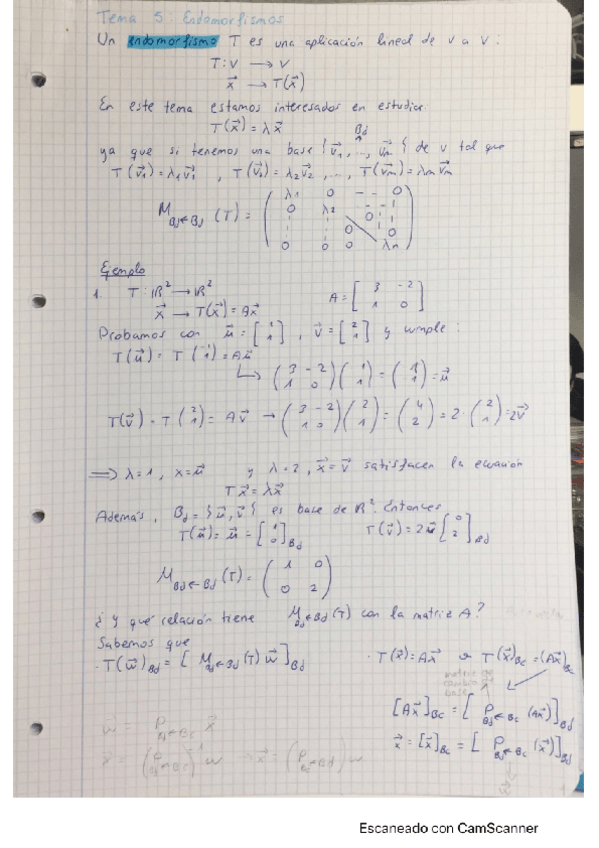 Tema 5: Endomorfismos
Un endomorfismo T es una aplicación lineal de V a V:
T: V → V
x⃗ → T(x⃗)
En este tema estamos interesados en estudiar:
T(x⃗) = λx⃗
ya que si tenemos una base {v⃗1, ..., v⃗n} de V tal que
Bd
T(v⃗1) = λ1v⃗1 , T(v⃗2) = λ2v⃗2 , ..., T(v⃗n) = λnv⃗n
M Bd←Bd (T) = ( λ1 0 - - 0
0 λ2 - - 0
0 0
0 0 0 λn )
Ejemplo
1. T: ℝ² → ℝ² A = [ 3 -2
x⃗ → T(x⃗) = Ax⃗ 1 0 ]
Probamos con u⃗ = [1 1] , v⃗ = [2 1] y cumple:
T(u⃗) = T(1 1) = Au⃗
↳ (3 -2 1 0)(1 1) = (1 1) = u⃗
T(v⃗) = T(2 1) = Av⃗ → (3 -2 1 0)(2 1) = (4 2) = 2·(2 1) = 2v⃗
⟹ λ=1, x=u⃗ y λ=2, x⃗=v⃗ satisfacen la ecuación
Tx⃗ = λx⃗
Además, Bd = {u⃗, v⃗} es base de ℝ². Entonces
T(u⃗) = u⃗ = [1 0]Bd T(v⃗) = 2u⃗ [0 2]Bd
M Bd←Bd (T) = (1 0
0 2)
¿Y qué relación tiene M Bd←Bd (T) con la matriz A?
Sabemos que
· T(w⃗)Bd = [M Bd←Bd (T) w⃗]Bd · T(x⃗) = Ax⃗ T(x⃗)Bc = (Ax⃗)Bc
matriz de
cambio de
base
[Ax⃗]Bc = [P Bd←Bc (Ax⃗)]Bd
x⃗ = [x⃗]Bc = [P Bd←Bc (x⃗)]Bd
w⃗ = P Bd←Bc x⃗
x⃗ = (P Bd←Bc)⁻¹ w x⃗ = (P Bc←Bd) w
1
Escaneado con CamScanner